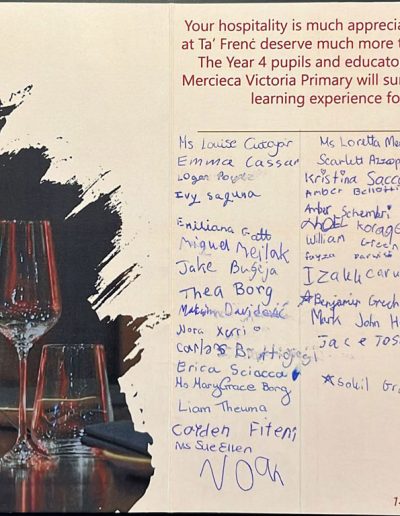 Your hospitality is much apprecia
at Ta' Frenċ deserve much more t
The Year 4 pupils and educato
Mercieca Victoria Primary will sur
learning experience fo
Ms Louise Cutajar
Emma Cassar
Logan
Ivy saguna
Emiliana Grott
Miguel Mejlak
Jake Bugeja
Thea Borg
Maksim Davidović
Nora Xerri
Carlos
Erica Sciacca
Ms MaryGrace Borg
Liam Theuma
Caiden Fiteni
Ms Sue Ellen
NOAH
Ms Loretta Me
Scarlett Azzop
Kristina Sacco
Amber Bellotti
Amber Schembri
NOEL Korage
William Green
Fayza
Izakk Caru
Benjamin Grech
Mark John H
Jace Jose
Sokil Gr
1